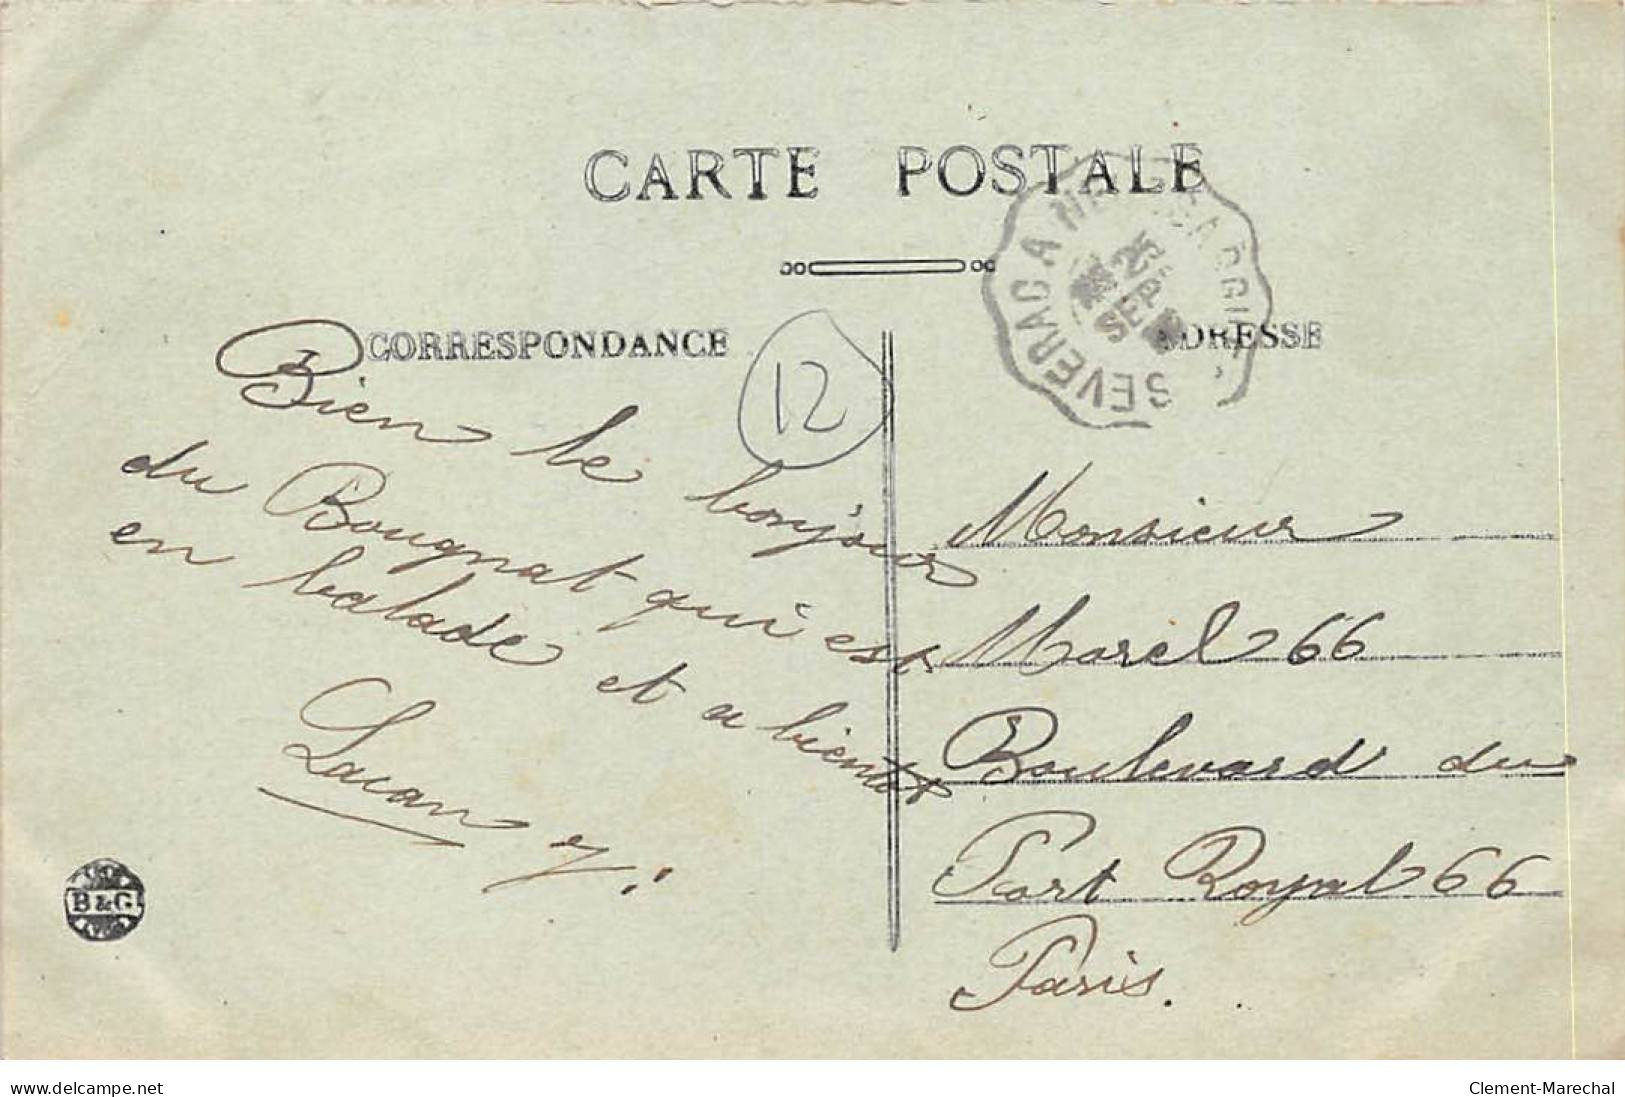 CARTE POSTALE
CORRESPONDANCE
ADRESSE
SEVERAC A
25
SEPT
12
Bien le bonjour
du Bougnat qui est
en balade et a bientot
Lacan
B & G
Monsieur
Morel 66
Boulevard du
Port Royal 66
Paris.
www.delcampe.net
Clement-Marechal